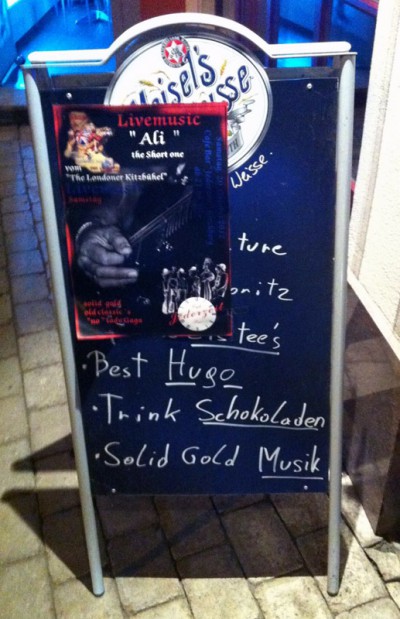 Maisel's
Weisse
Livemusic
" Ali "
the Short one
vom
"The Londoner Kitzbühel"
Samstag
solid gold
old classic's
Weisse
ture
onitz
tee's
· Best Hugo
· Trink Schokoladen
· Solid Gold Musik